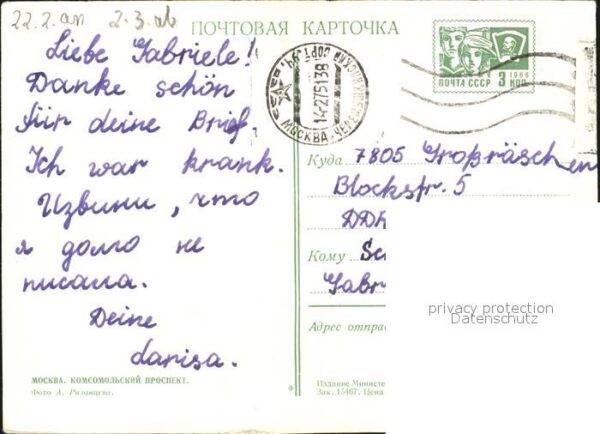 22.2. an 2.3. ab
ПОЧТОВАЯ КАРТОЧКА
Liebe Gabriele!
Danke schön
für deine Brief.
Ich war krank.
Извини, что
я долго не
писала.
Deine
Larisa.
МОСКВА. КОМСОМОЛЬСКИЙ ПРОСПЕКТ.
Фото А. Рязанцева.
МОСКВА
1966
ПОЧТА СССР 3 КОП
Куда 7805 Großräschen
Blockstr. 5
DDR
Кому
Gabr
Адрес отправ
Издание Министе
Зак. 15467. Цена
privacy protection
Datenschutz